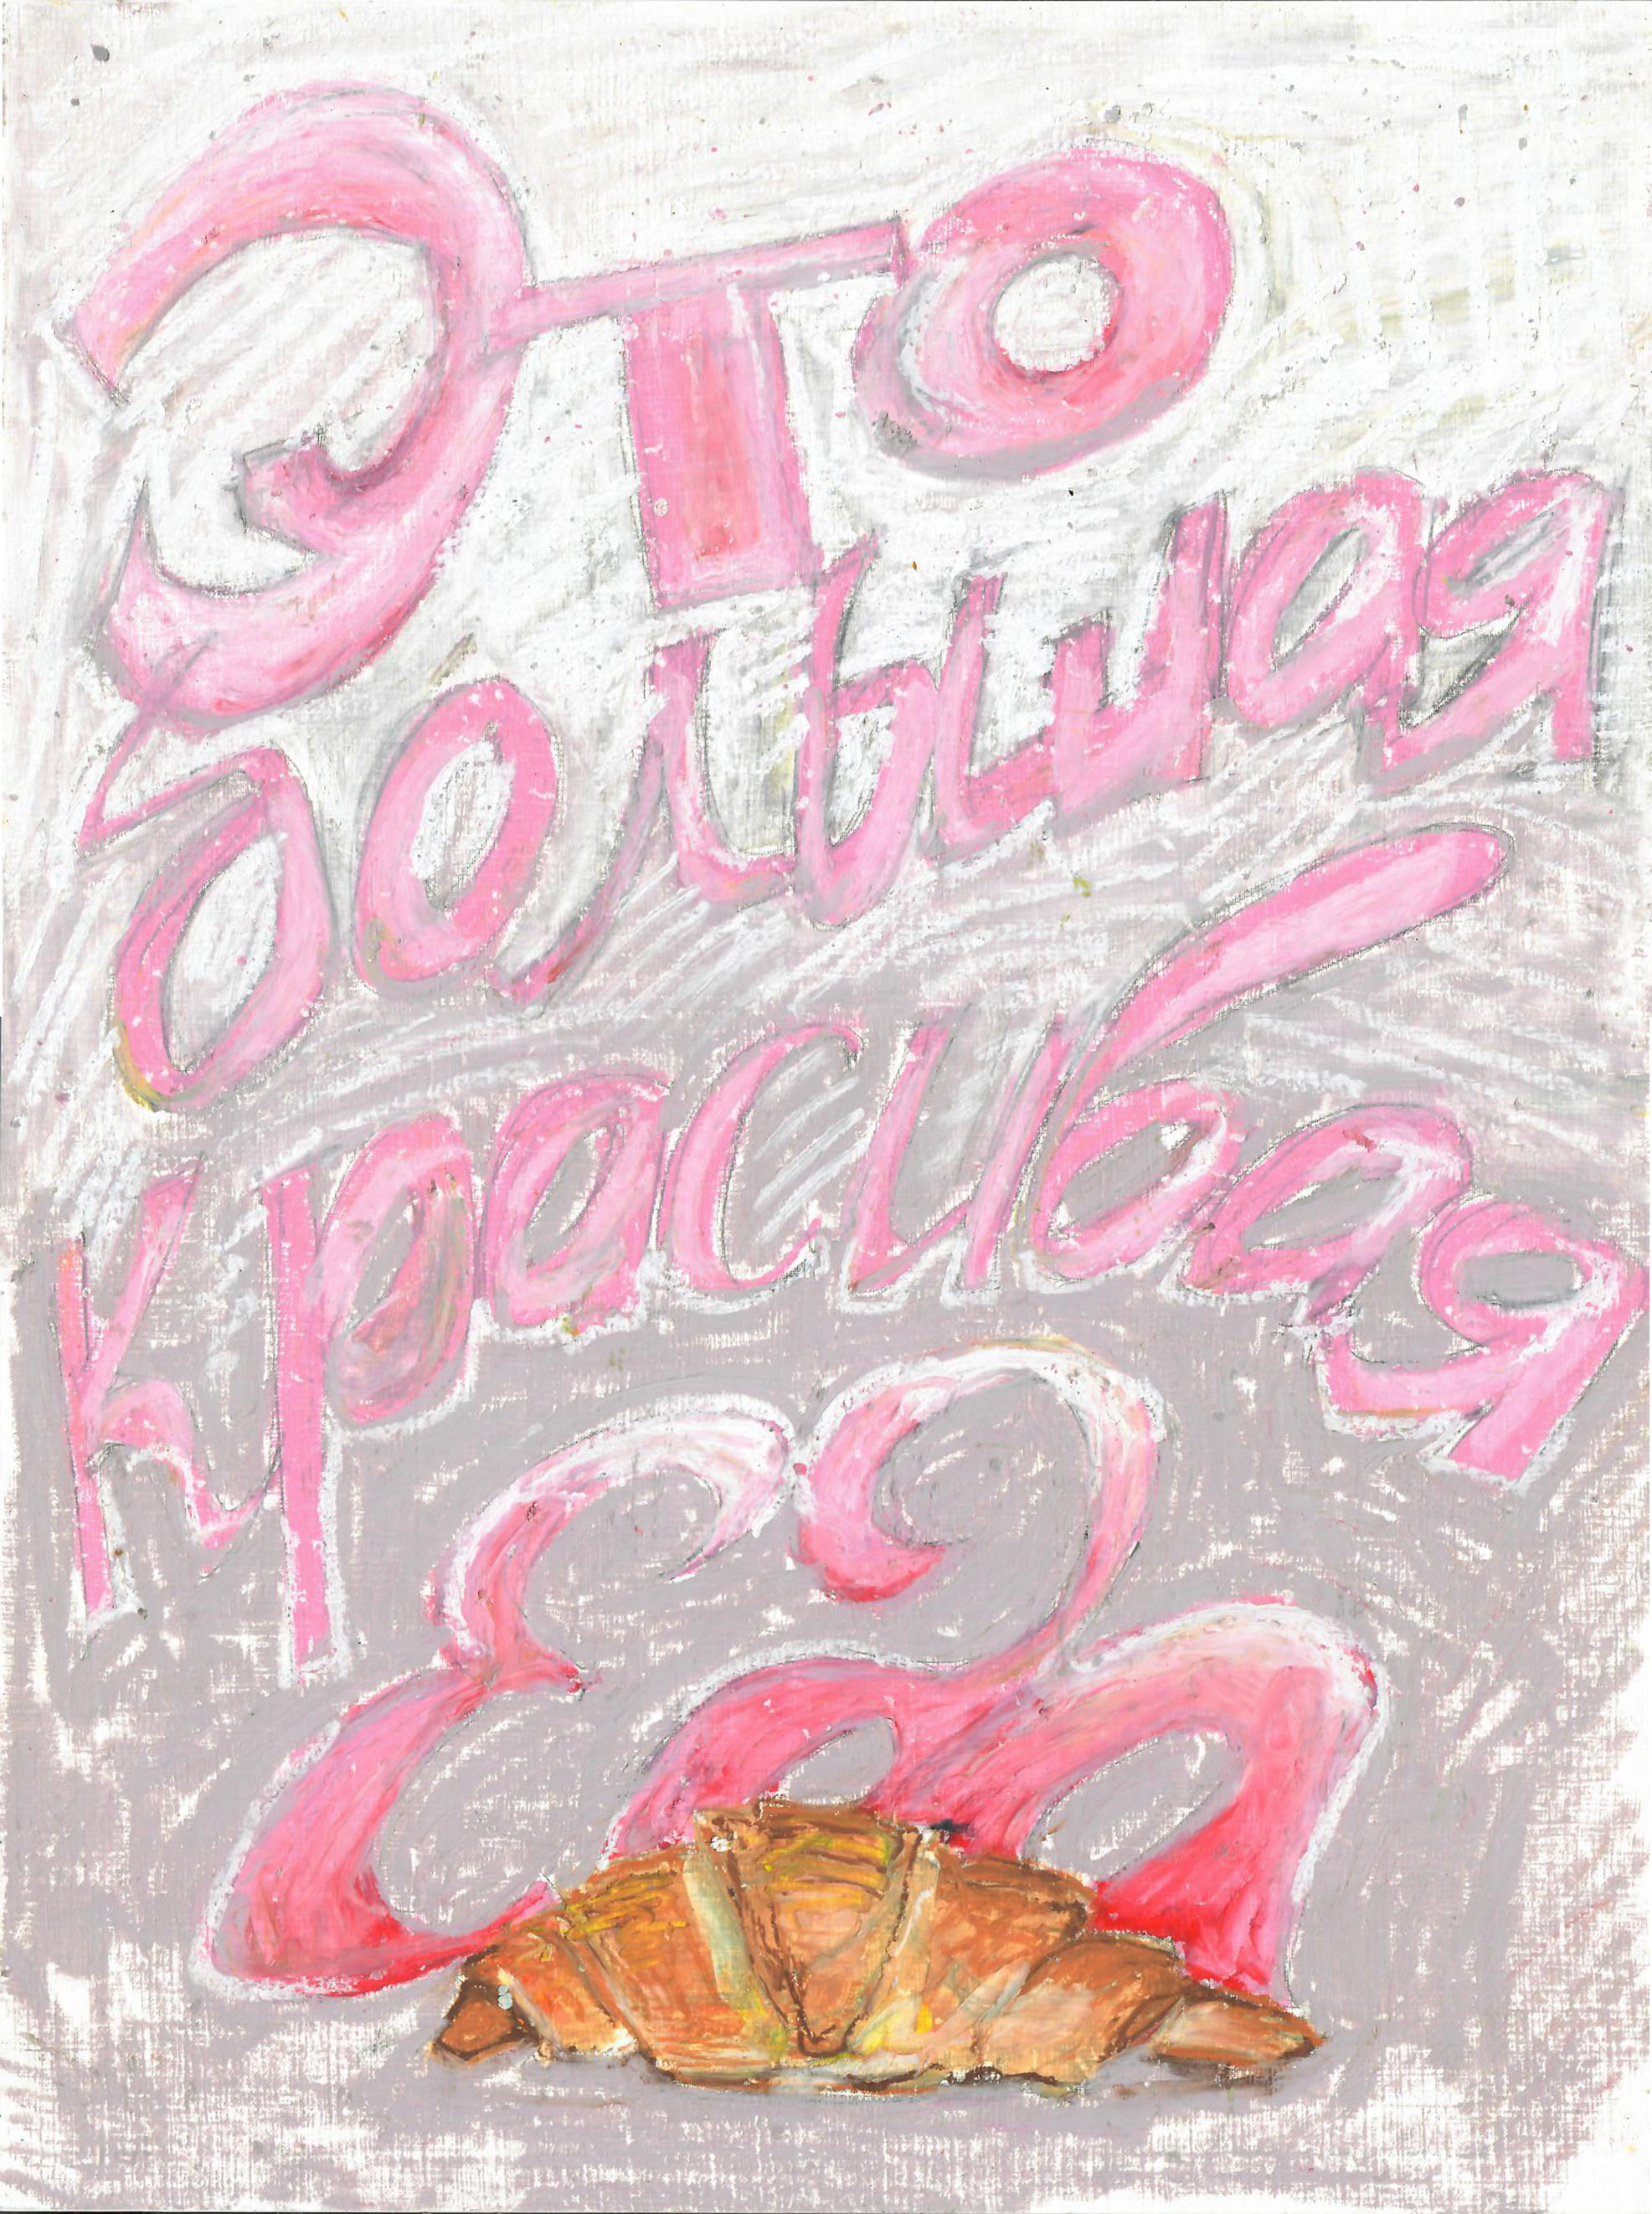 Это
большая
красивая
Еда